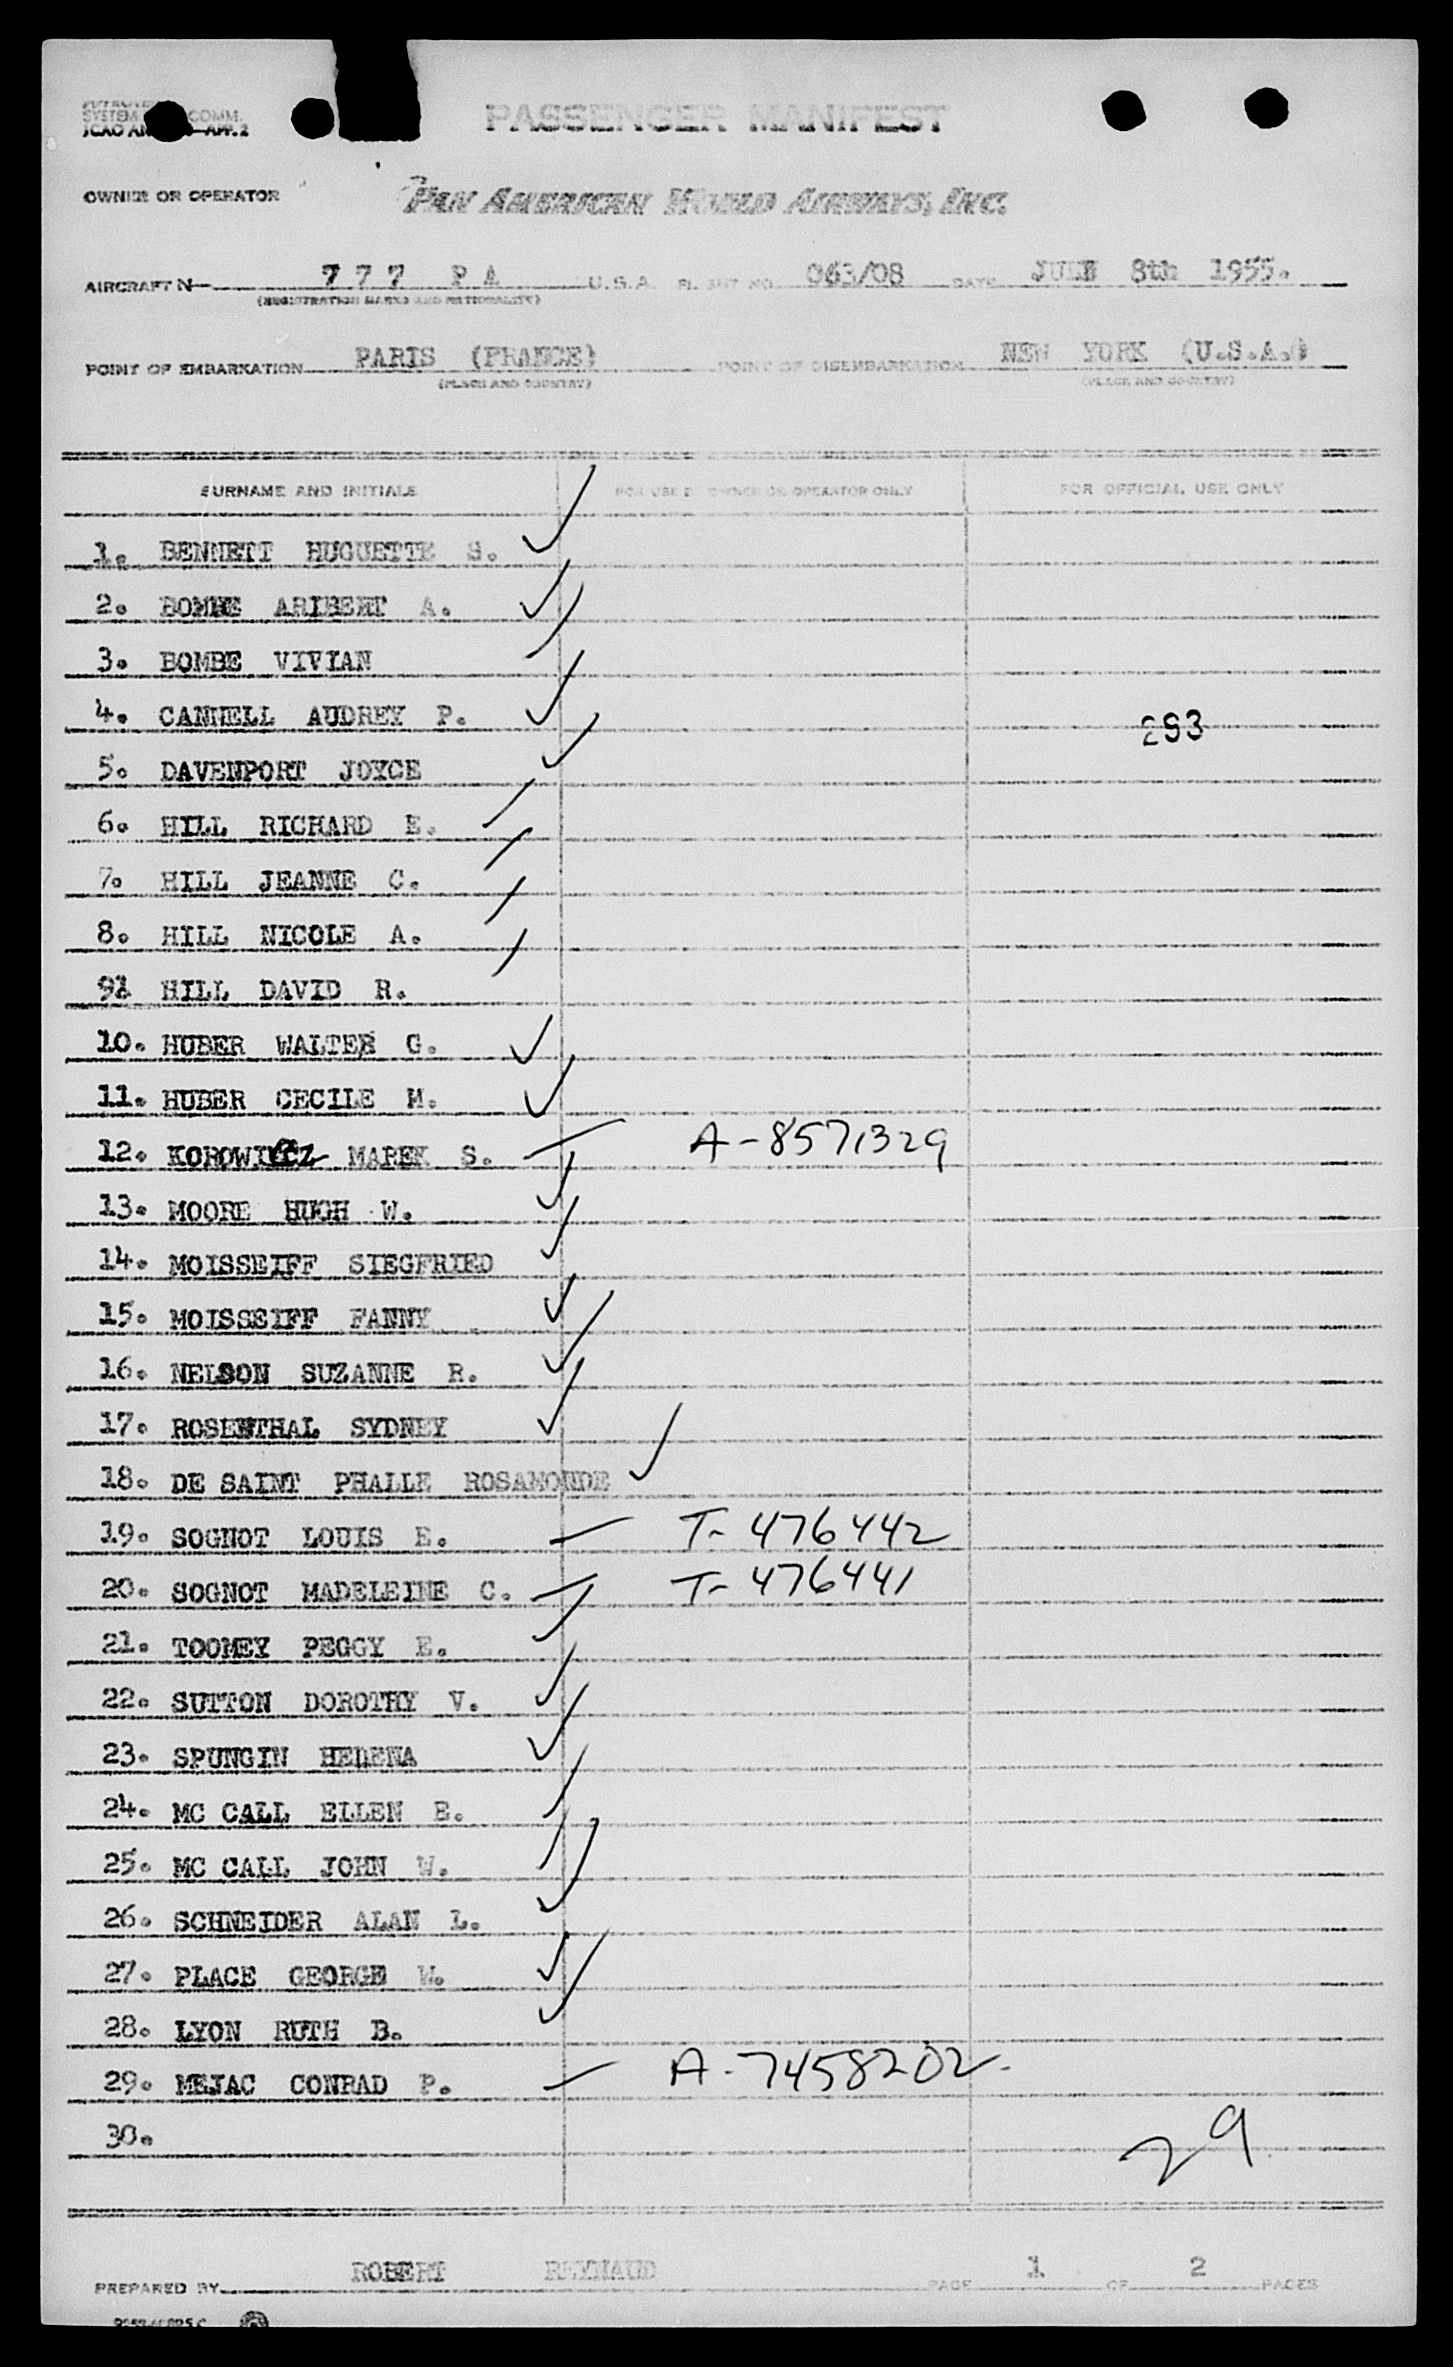 SYSTEM COMM.
ICAO AN APP. 2
PASSENGER MANIFEST
OWNER OR OPERATOR
PAN AMERICAN WORLD AIRWAYS, INC.
AIRCRAFT N 777 PA U.S.A. FLIGHT NO. 063/08 DATE JUNE 8th 1955.
(REGISTRATION MARKS AND NATIONALITY)
POINT OF EMBARKATION PARIS (FRANCE) POINT OF DISEMBARKATION NEW YORK (U.S.A.)
(PLACE AND COUNTRY) (PLACE AND COUNTRY)
SURNAME AND INITIALS FOR USE BY OWNER OR OPERATOR ONLY FOR OFFICIAL USE ONLY
1. BENNETT HUGUETTE S.
2. BOMBE ARIBERT A.
3. BOMBE VIVIAN
4. CANNELL AUDREY P. 283
5. DAVENPORT JOYCE
6. HILL RICHARD E.
7. HILL JEANNE C.
8. HILL NICOLE A.
9. HILL DAVID R.
10. HUBER WALTER G.
11. HUBER CECILE M.
12. KOROWICZ MAREK S. A-8571329
13. MOORE HUGH W.
14. MOISSEIFF SIEGFRIED
15. MOISSEIFF FANNY
16. NELSON SUZANNE R.
17. ROSENTHAL SYDNEY
18. DE SAINT PHALLE ROSAMONDE
19. SOGNOT LOUIS E. T-476442
20. SOGNOT MADELEINE C. T-476441
21. TOOMEY PEGGY E.
22. SUTTON DOROTHY V.
23. SPUNGIN HELENA
24. MC CALL ELLEN E.
25. MC CALL JOHN W.
26. SCHNEIDER ALAN L.
27. PLACE GEORGE W.
28. LYON RUTH B.
29. MEJAC CONRAD P. A-7458202
30.
29
PREPARED BY ROBERT REYNAUD PAGE 1 OF 2 PAGES